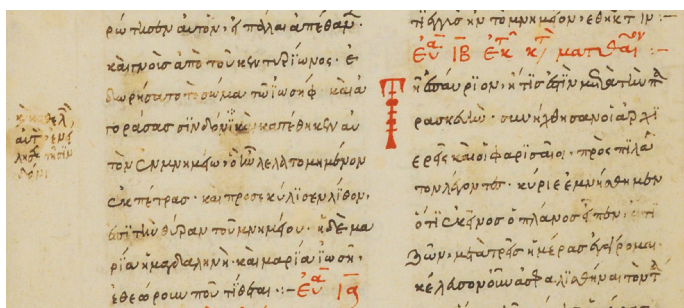 ρώτησεν αὐτὸν, εἰ πάλαι ἀπέθαν
καὶ γνοὺς ἀπὸ τοῦ κεντυρίωνος· ἐ
δωρήσατο τὸ σῶμα τῶ ἰωσήφ· καὶ ἀ
γοράσας σινδόνα καὶ κατέθηκεν αὐ
τὸν ἐν μνημείω, ὃ ἦν λελατομημένον
ἐκ πέτρας· καὶ προσεκύλισεν λίθον,
ἐπὶ τὴν θύραν τοῦ μνημείου· ἡ δὲ μα
ρία ἡ μαγδαληνὴ· καὶ μαρία ἰωσῆ,
ἐθεώρουν ποῦ τίθεται :-
τὸ μνημεῖον, ἐθηκ
Εὐα ΙΒ ἐκ τ κτ ματθαῖον :-
Τῆ ἐπαύριον, ἥτις ἐστὶν μετὰ τὴν πα
ρασκευὴν· συνήχθησαν οἱ ἀρχι
ερεῖς καὶ οἱ φαρισαῖοι· πρὸς πιλᾶ
τον λέγοντες· κύριε ἐμνήσθημεν
ὅτι ἐκεῖνος ὁ πλάνος εἶπεν, ἔτι
ζῶν, μετὰ τρεῖς ἡμέρας ἐγείρομαι·
κέλευσον οὖν ἀσφαλισθῆναι τὸν τά